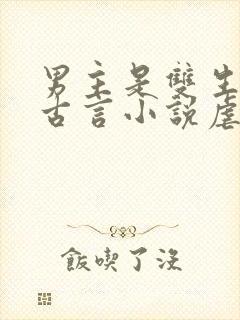 男主是雙生
古言小說虐
飯喫了沒